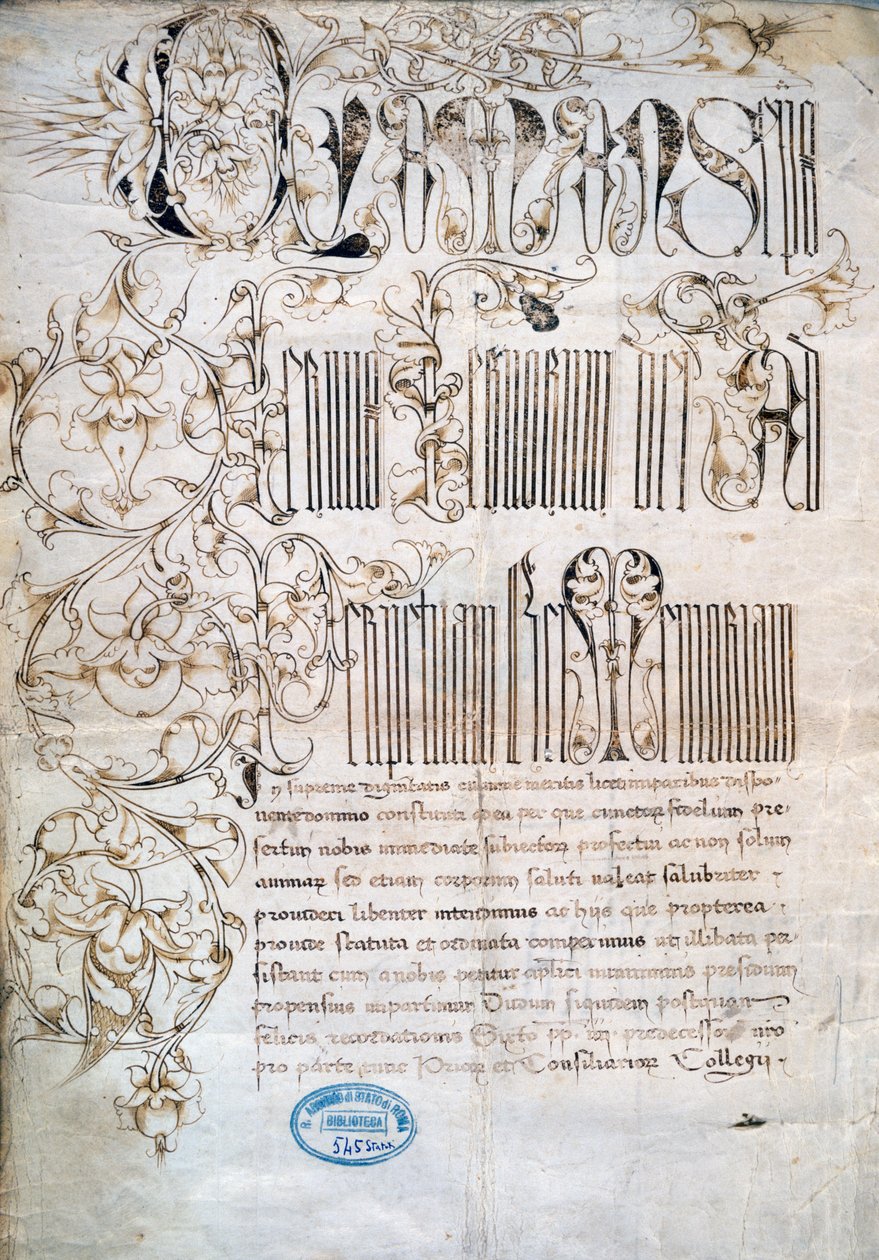 CLEMENS Ep̅s
Servus Servorum dei Ad
Perpetuam Rei Memoriam
In supreme dignitatis culmine meritis licet imparibus dispo-
nente domino constituti ad ea per que cunctoꝝ fidelium pre-
sertim nobis immediate subiectoꝝ profectui ac non solum
animaꝝ sed etiam corporum saluti valeat salubriter
provideri libenter intendimus ac hiis que propterea
provide statuta et ordinata comperimus ut illibata per-
sistant cum a nobis petitur ap̅lici muniminis presidium
propensius impartimur Dudum siquidem postquam
felicis recordationis Sixto pp. iiii predecessori nr̅o
pro parte tunc Prioꝝ et Consiliarioꝝ Collegii
R. ARCHIVIO di STATO di ROMA
BIBLIOTECA
545 Statuti